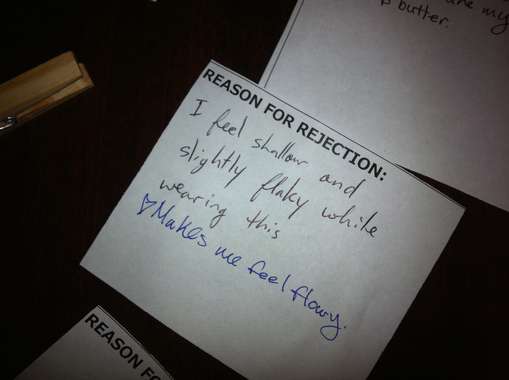 are my
butter.
REASON FOR REJECTION:
I feel shallow and
slightly flaky while
wearing this
Makes me feel flowy.
REASON FO